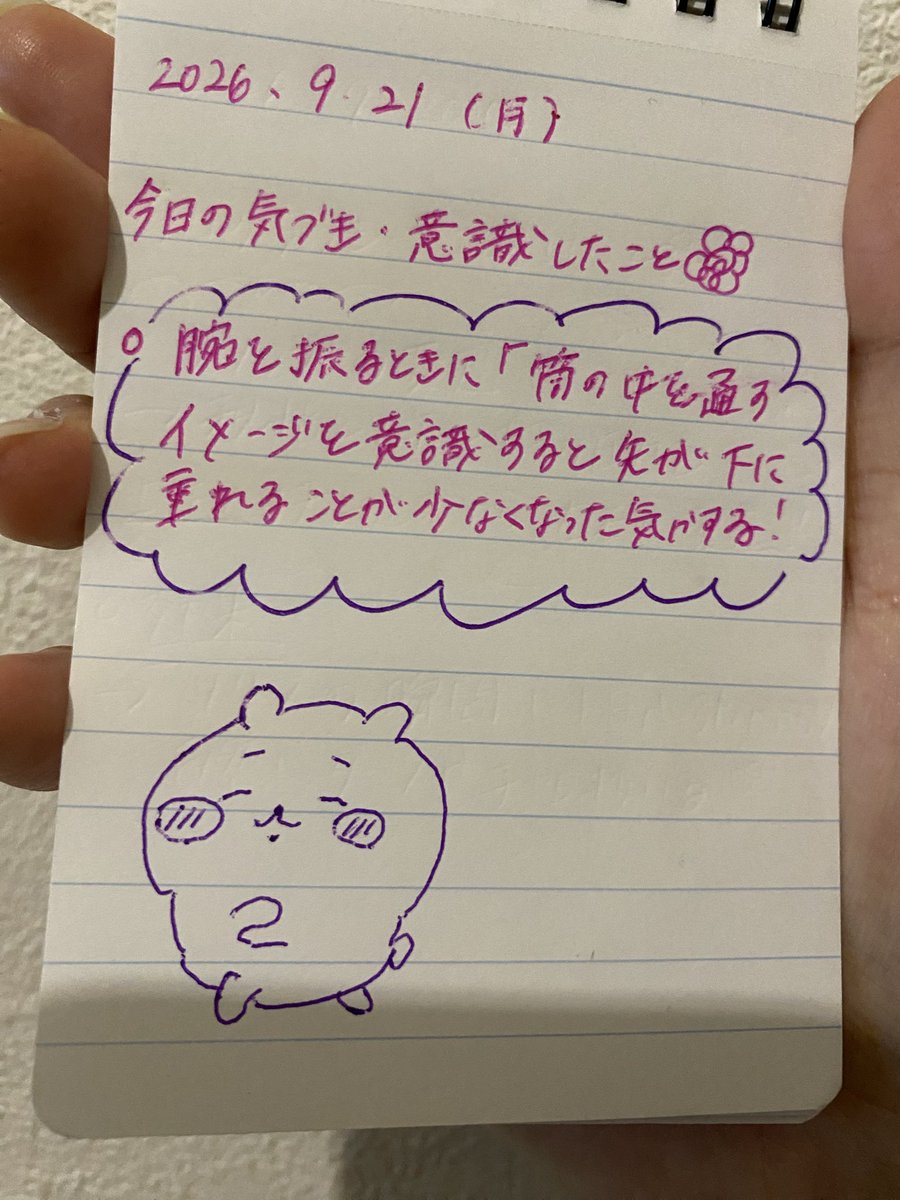 2026、9.21（月）
今日の気づき・意識したこと
○ 腕を振るときに「筒の中を通す
イメージを意識すると矢が下に
垂れることが少なくなった気がする！